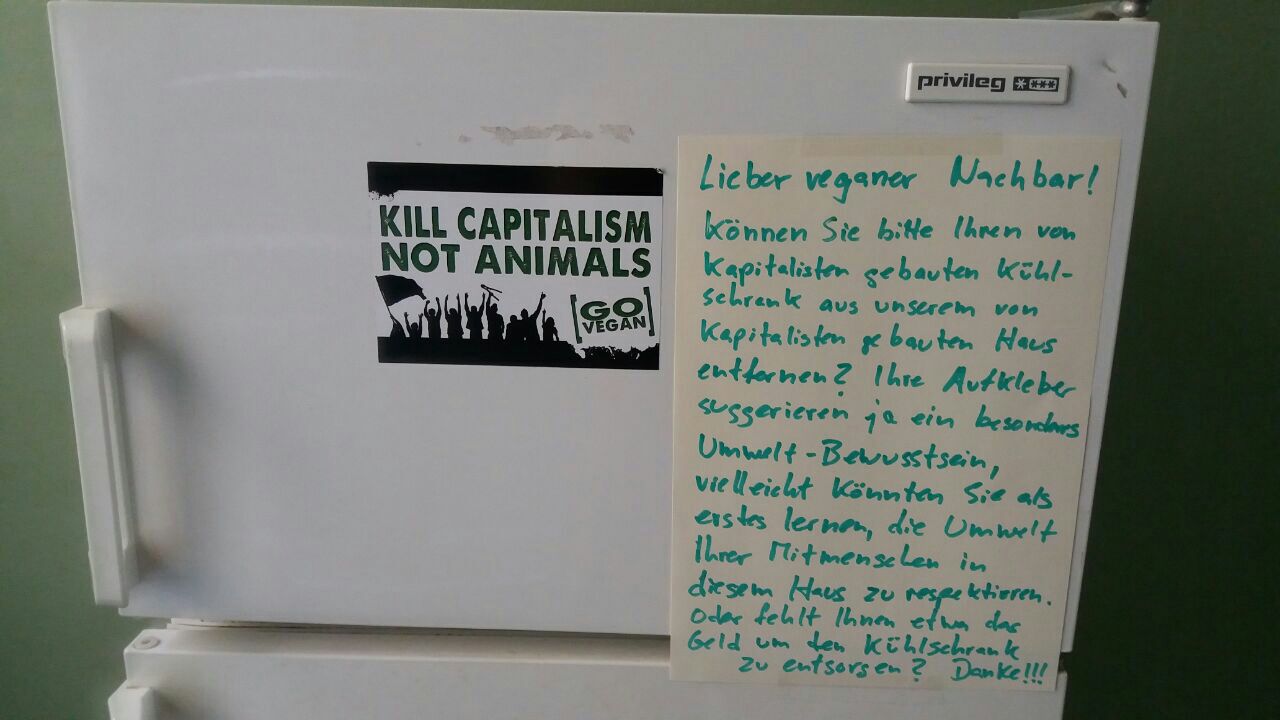 privileg
KILL CAPITALISM
NOT ANIMALS
[GO
VEGAN]
Lieber veganer Nachbar!
Können Sie bitte Ihren von
Kapitalisten gebauten Kühl-
schrank aus unserem von
Kapitalisten gebauten Haus
entfernen? Ihre Aufkleber
suggerieren ja ein besonders
Umwelt-Bewusstsein,
vielleicht könnten Sie als
erstes lernen, die Umwelt
Ihrer Mitmenschen in
diesem Haus zu respektieren.
Oder fehlt Ihnen etwa das
Geld um den Kühlschrank
zu entsorgen? Danke!!!